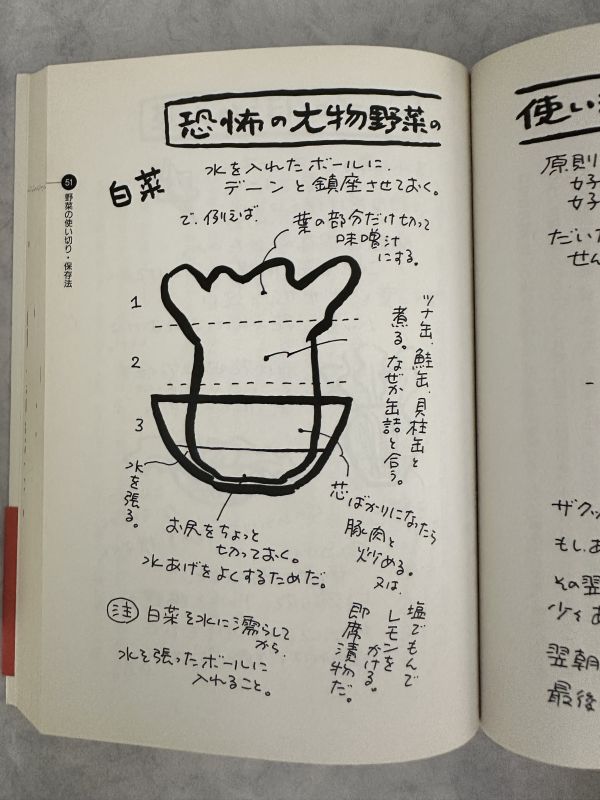 51
野菜の使い切り・保存法
恐怖の大物野菜の
白菜
水を入れたボールに、
デーンと鎮座させておく。
で、例えば、
葉の部分だけ切って
味噌汁
にする。
1
2
3
ツナ缶、鮭缶、貝柱缶と
煮る。なぜか缶詰と合う。
水を張る。
芯ばかりになったら
豚肉と
炒める。
又は、
塩でもんで
レモンを
かける。
即席漬物だ。
お尻をちょっと
切っておく。
水あげをよくするためだ。
注 白菜を水に濡らして
から、
水を張ったボールに
入れること。
使い
原則
女子
女子
だいた
せん
ザクッ
もし、あ
その翌
少々あ
翌朝
最後